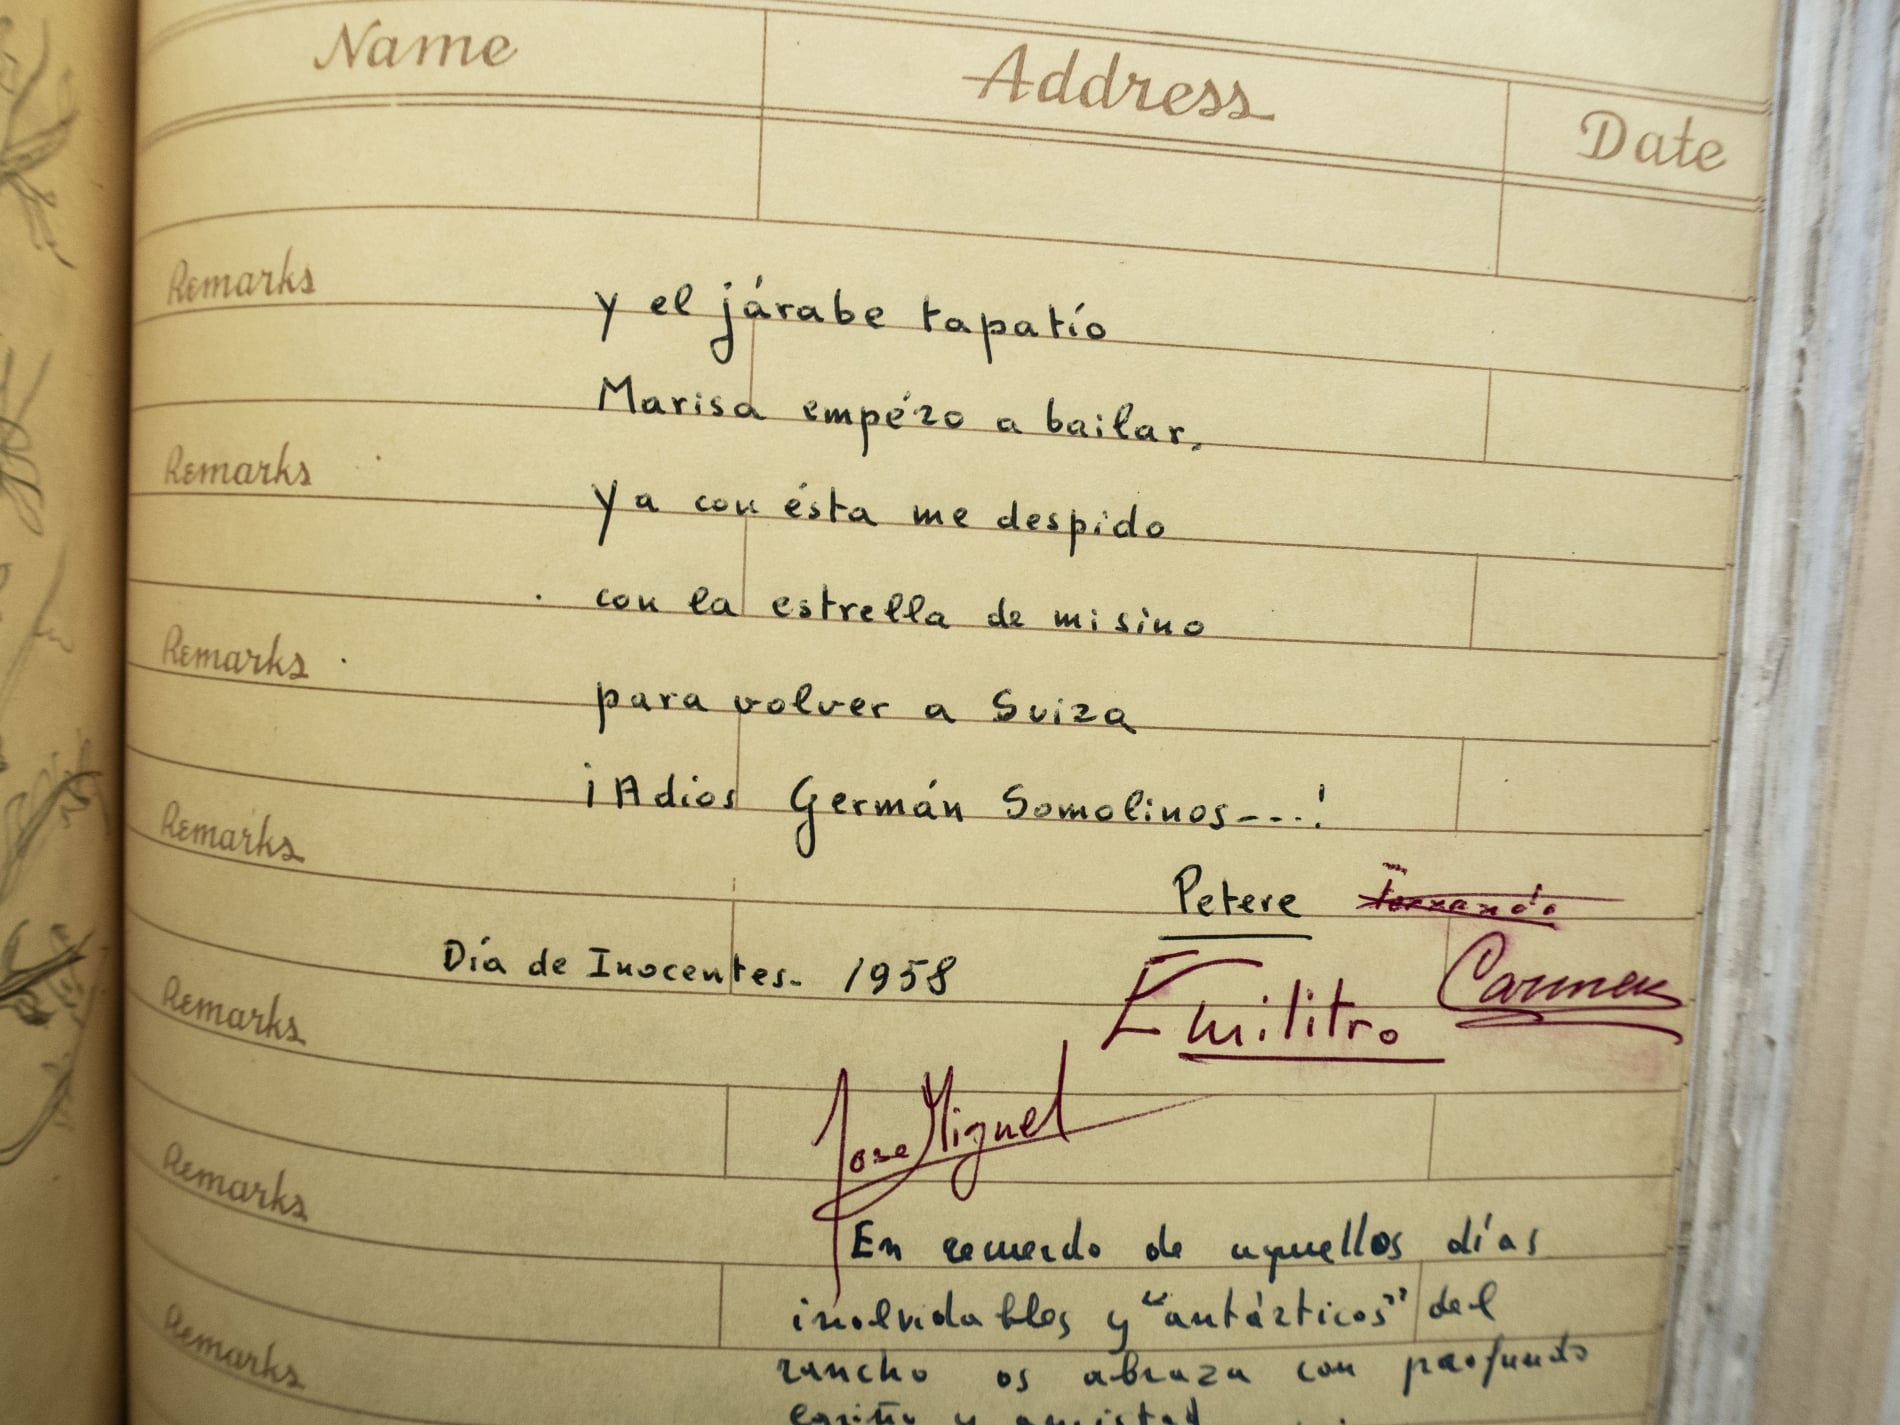 Name Address Date
Remarks
y el járabe tapatío
Marisa empézo a bailar,
Remarks
Ya con ésta me despido
con la estrella de mi sino
Remarks
para volver a Suiza
¡Adios Germán Somolinos---!
Remarks
Petere
Día de Inocentes. 1958
Carmen
Remarks
Emilitro
Jose Miguel
Remarks
En recuerdo de aquellos días
inolvidables y "antárticos" del
Remarks
rancho os abraza con profundo
cariño y amistad